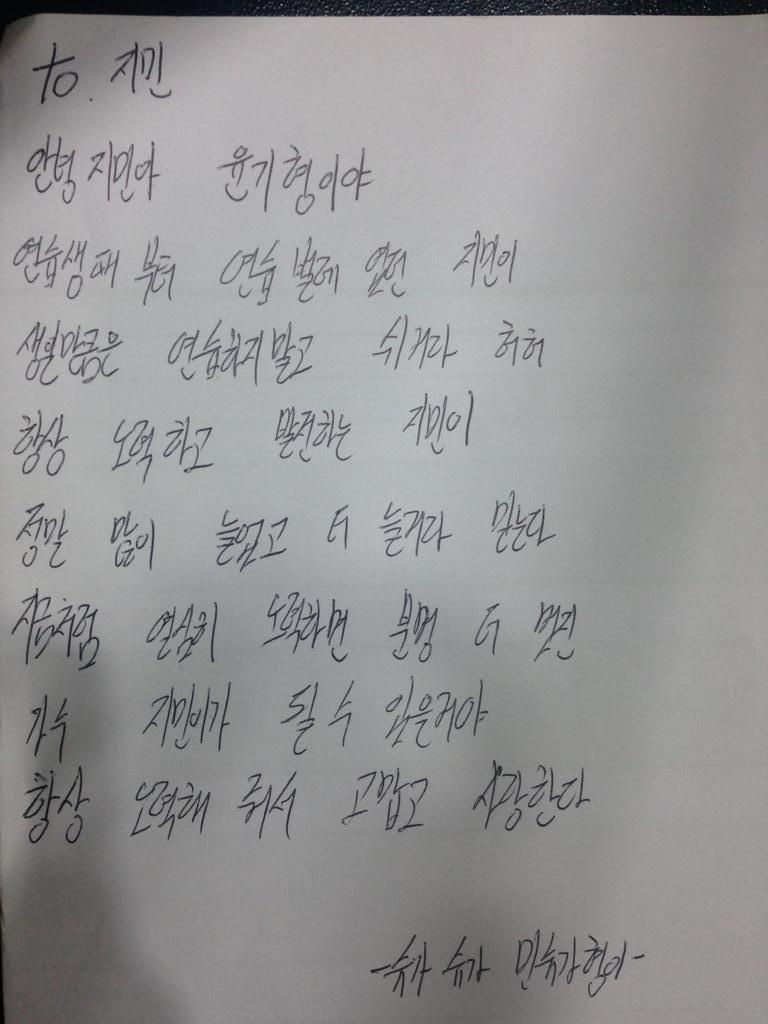 to. 지민
안녕 지민아 윤기형이야
연습생때 부터 연습 벌레 였던 지민이
생일만큼은 연습하지말고 쉬거라 허허
항상 노력하고 발전하는 지민이
정말 많이 늘었고 더 늘거라 믿는다
지금처럼 열심히 노력하면 분명 더 멋진
가수 지민이가 될 수 있을거야
항상 노력해 줘서 고맙고 사랑한다
-슈가 슈가 민슈가 형이-